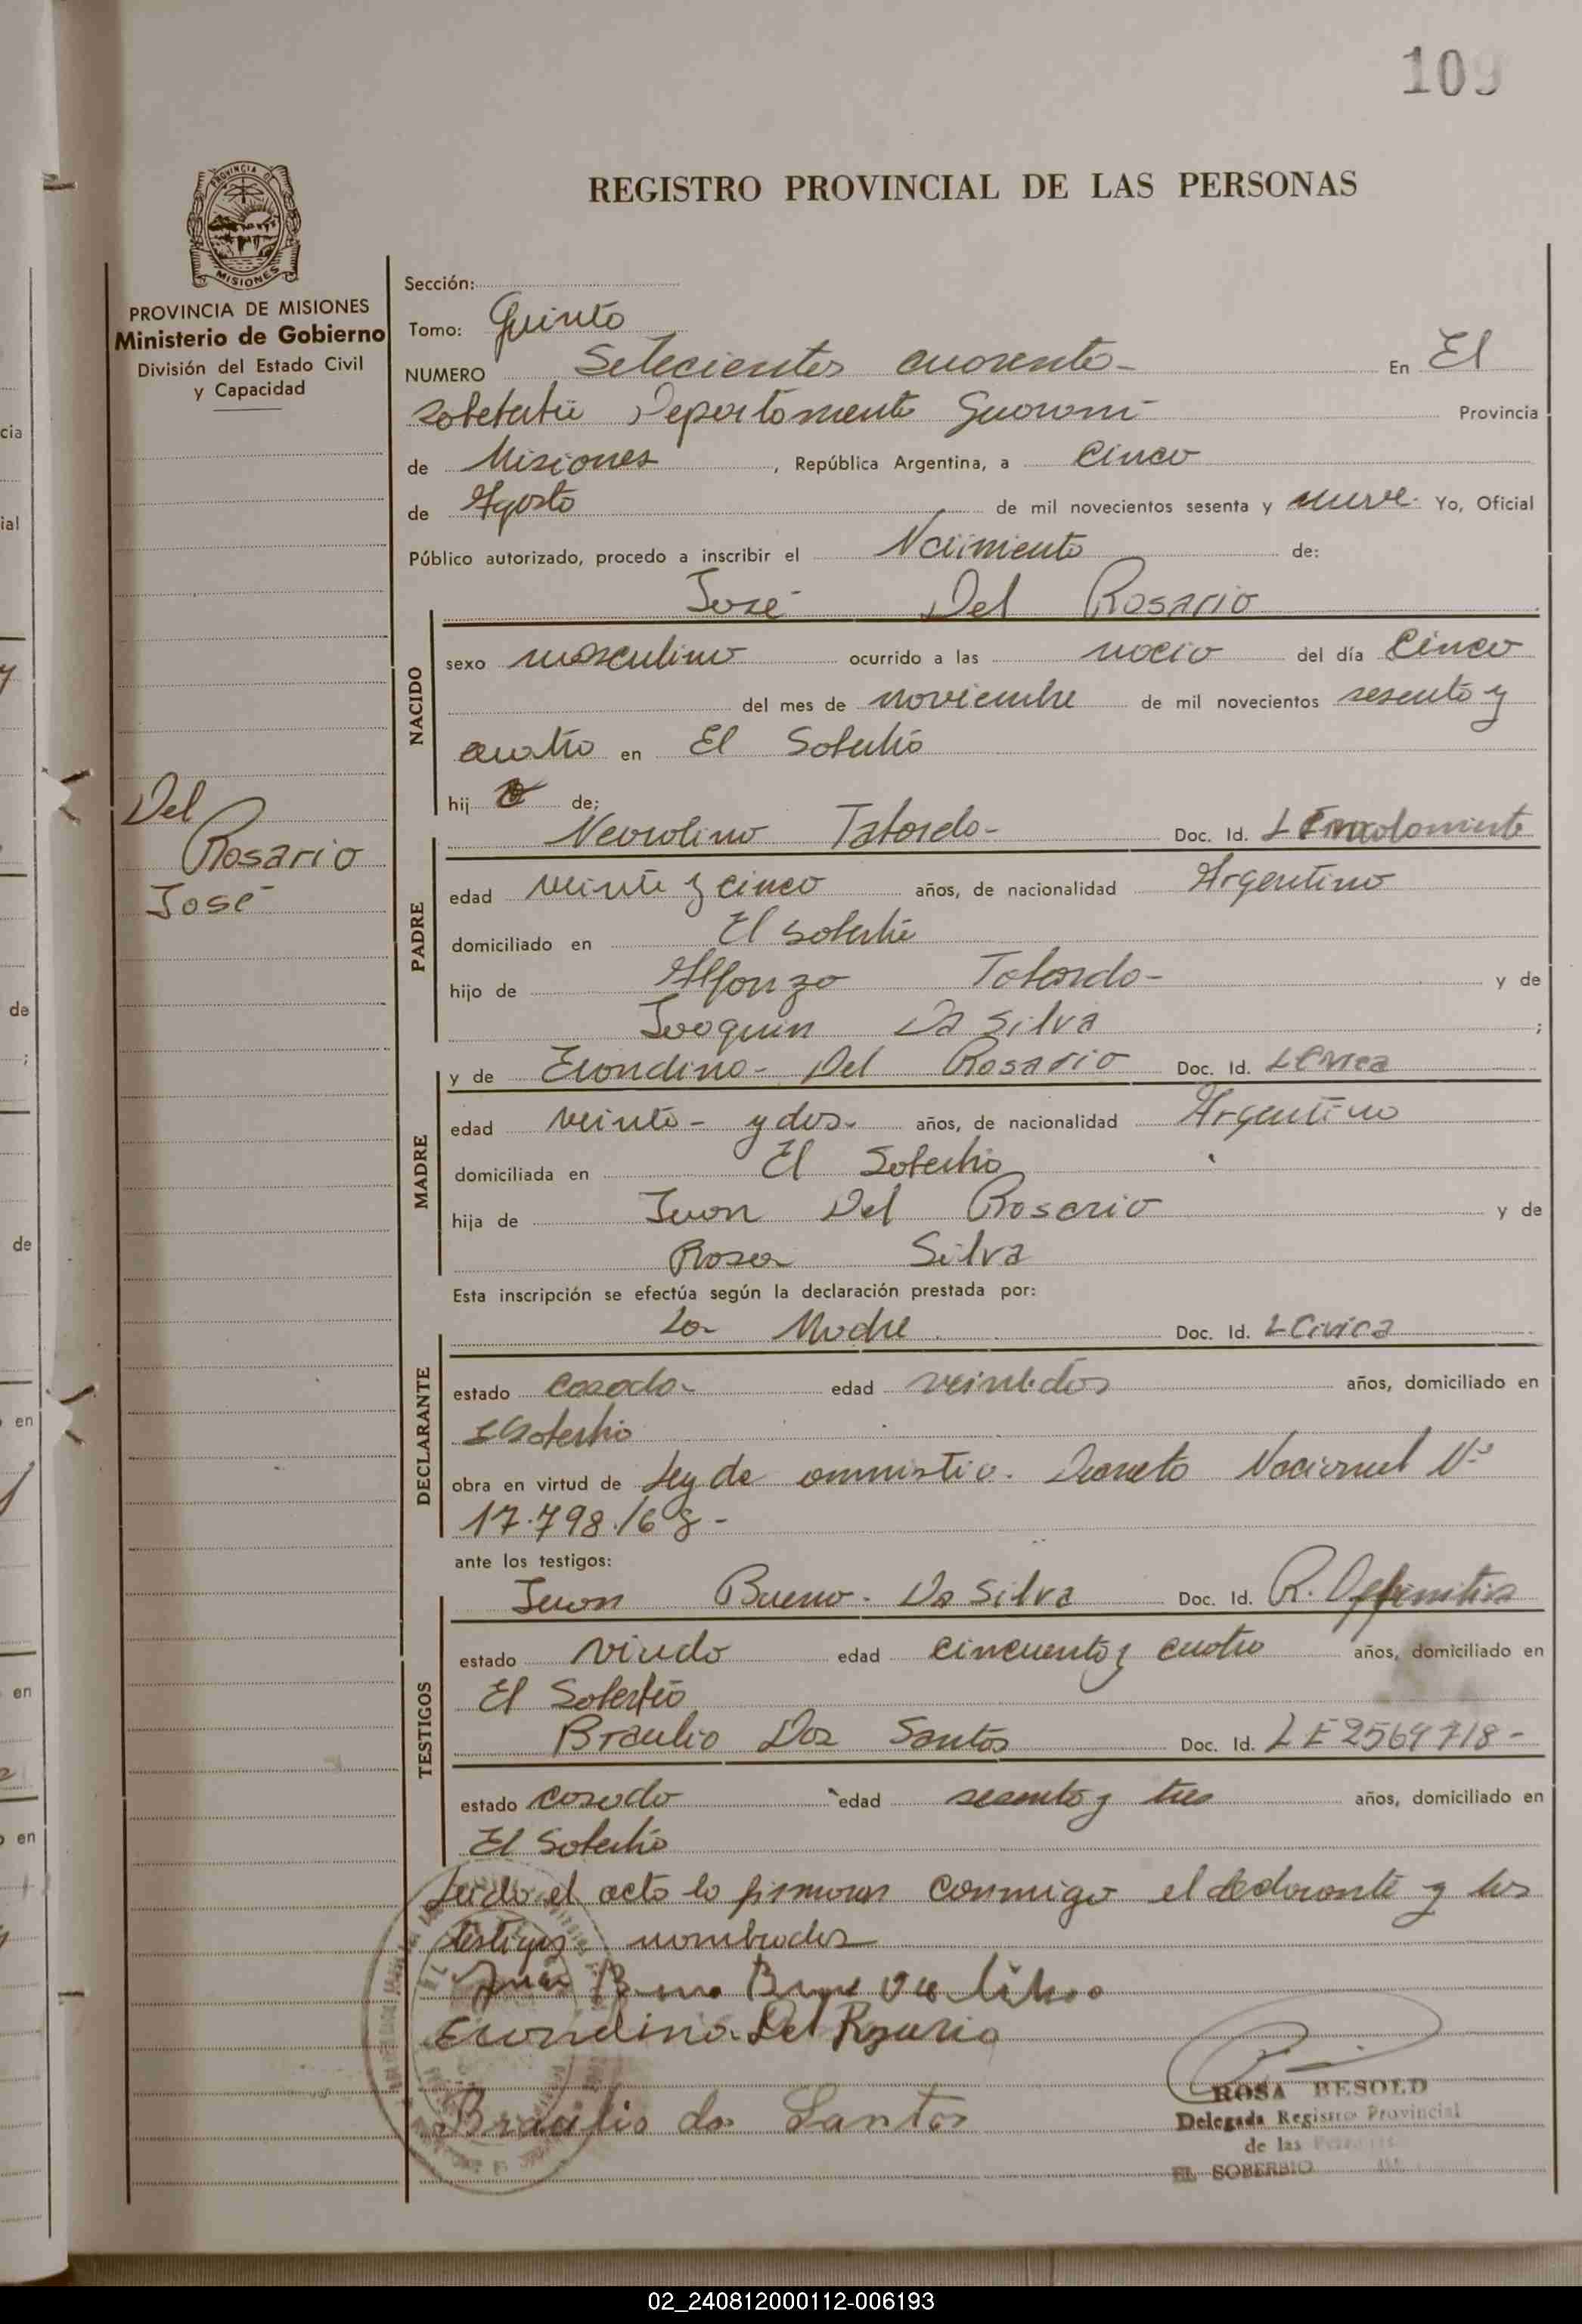 109
REGISTRO PROVINCIAL DE LAS PERSONAS
PROVINCIA DE
MISIONES
PROVINCIA DE MISIONES
Ministerio de Gobierno
División del Estado Civil
y Capacidad
Del
Rosario
José
Sección:
Tomo: Quinto
NUMERO Setecientos cuarenta- En El
Departamento Guarani Provincia
de Misiones, República Argentina, a Cinco
de Agosto de mil novecientos sesenta y nueve. Yo, Oficial
Público autorizado, procedo a inscribir el Nacimiento de:
José Del Rosario
NACIDO
sexo masculino ocurrido a las del día Cinco
del mes de noviembre de mil novecientos sesenta y
cuatro en El Soberbio
hij o de:
PADRE
Taborda- Doc. Id. L
edad veinte y cinco años, de nacionalidad Argentino
domiciliado en El Soberbio
hijo de Alfonzo Taborda- y de
Joaquin Da Silva ;
y de Erondina- Del Rosario Doc. Id. LCivica
MADRE
edad veinte- y dos- años, de nacionalidad Argentina
domiciliada en El Soberbio
hija de Juan Del Rosario y de
Rosa Silva
Esta inscripción se efectúa según la declaración prestada por:
La Madre Doc. Id. LCivica
DECLARANTE
estado casada- edad veintidos años, domiciliado en
El Soberbio
obra en virtud de Ley de amnistia. Decreto Nacional Nº
17.798./68-
ante los testigos:
TESTIGOS
Juan Bueno- Da Silva Doc. Id. R.
estado viudo edad cincuenta y cuatro años, domiciliado en
El Soberbio
Braulio Dos Santos Doc. Id. LE 2564718-
estado casado edad sesenta y tres años, domiciliado en
El Soberbio
Leida el acta la firman conmigo el declarante y los
testigos nombrados
Juan
Erondina Del Rosario
Braulio do Santos
ROSA BESOLD
Delegada Registro Provincial
de las
EL SOBERBIO
02_240812000112-006193